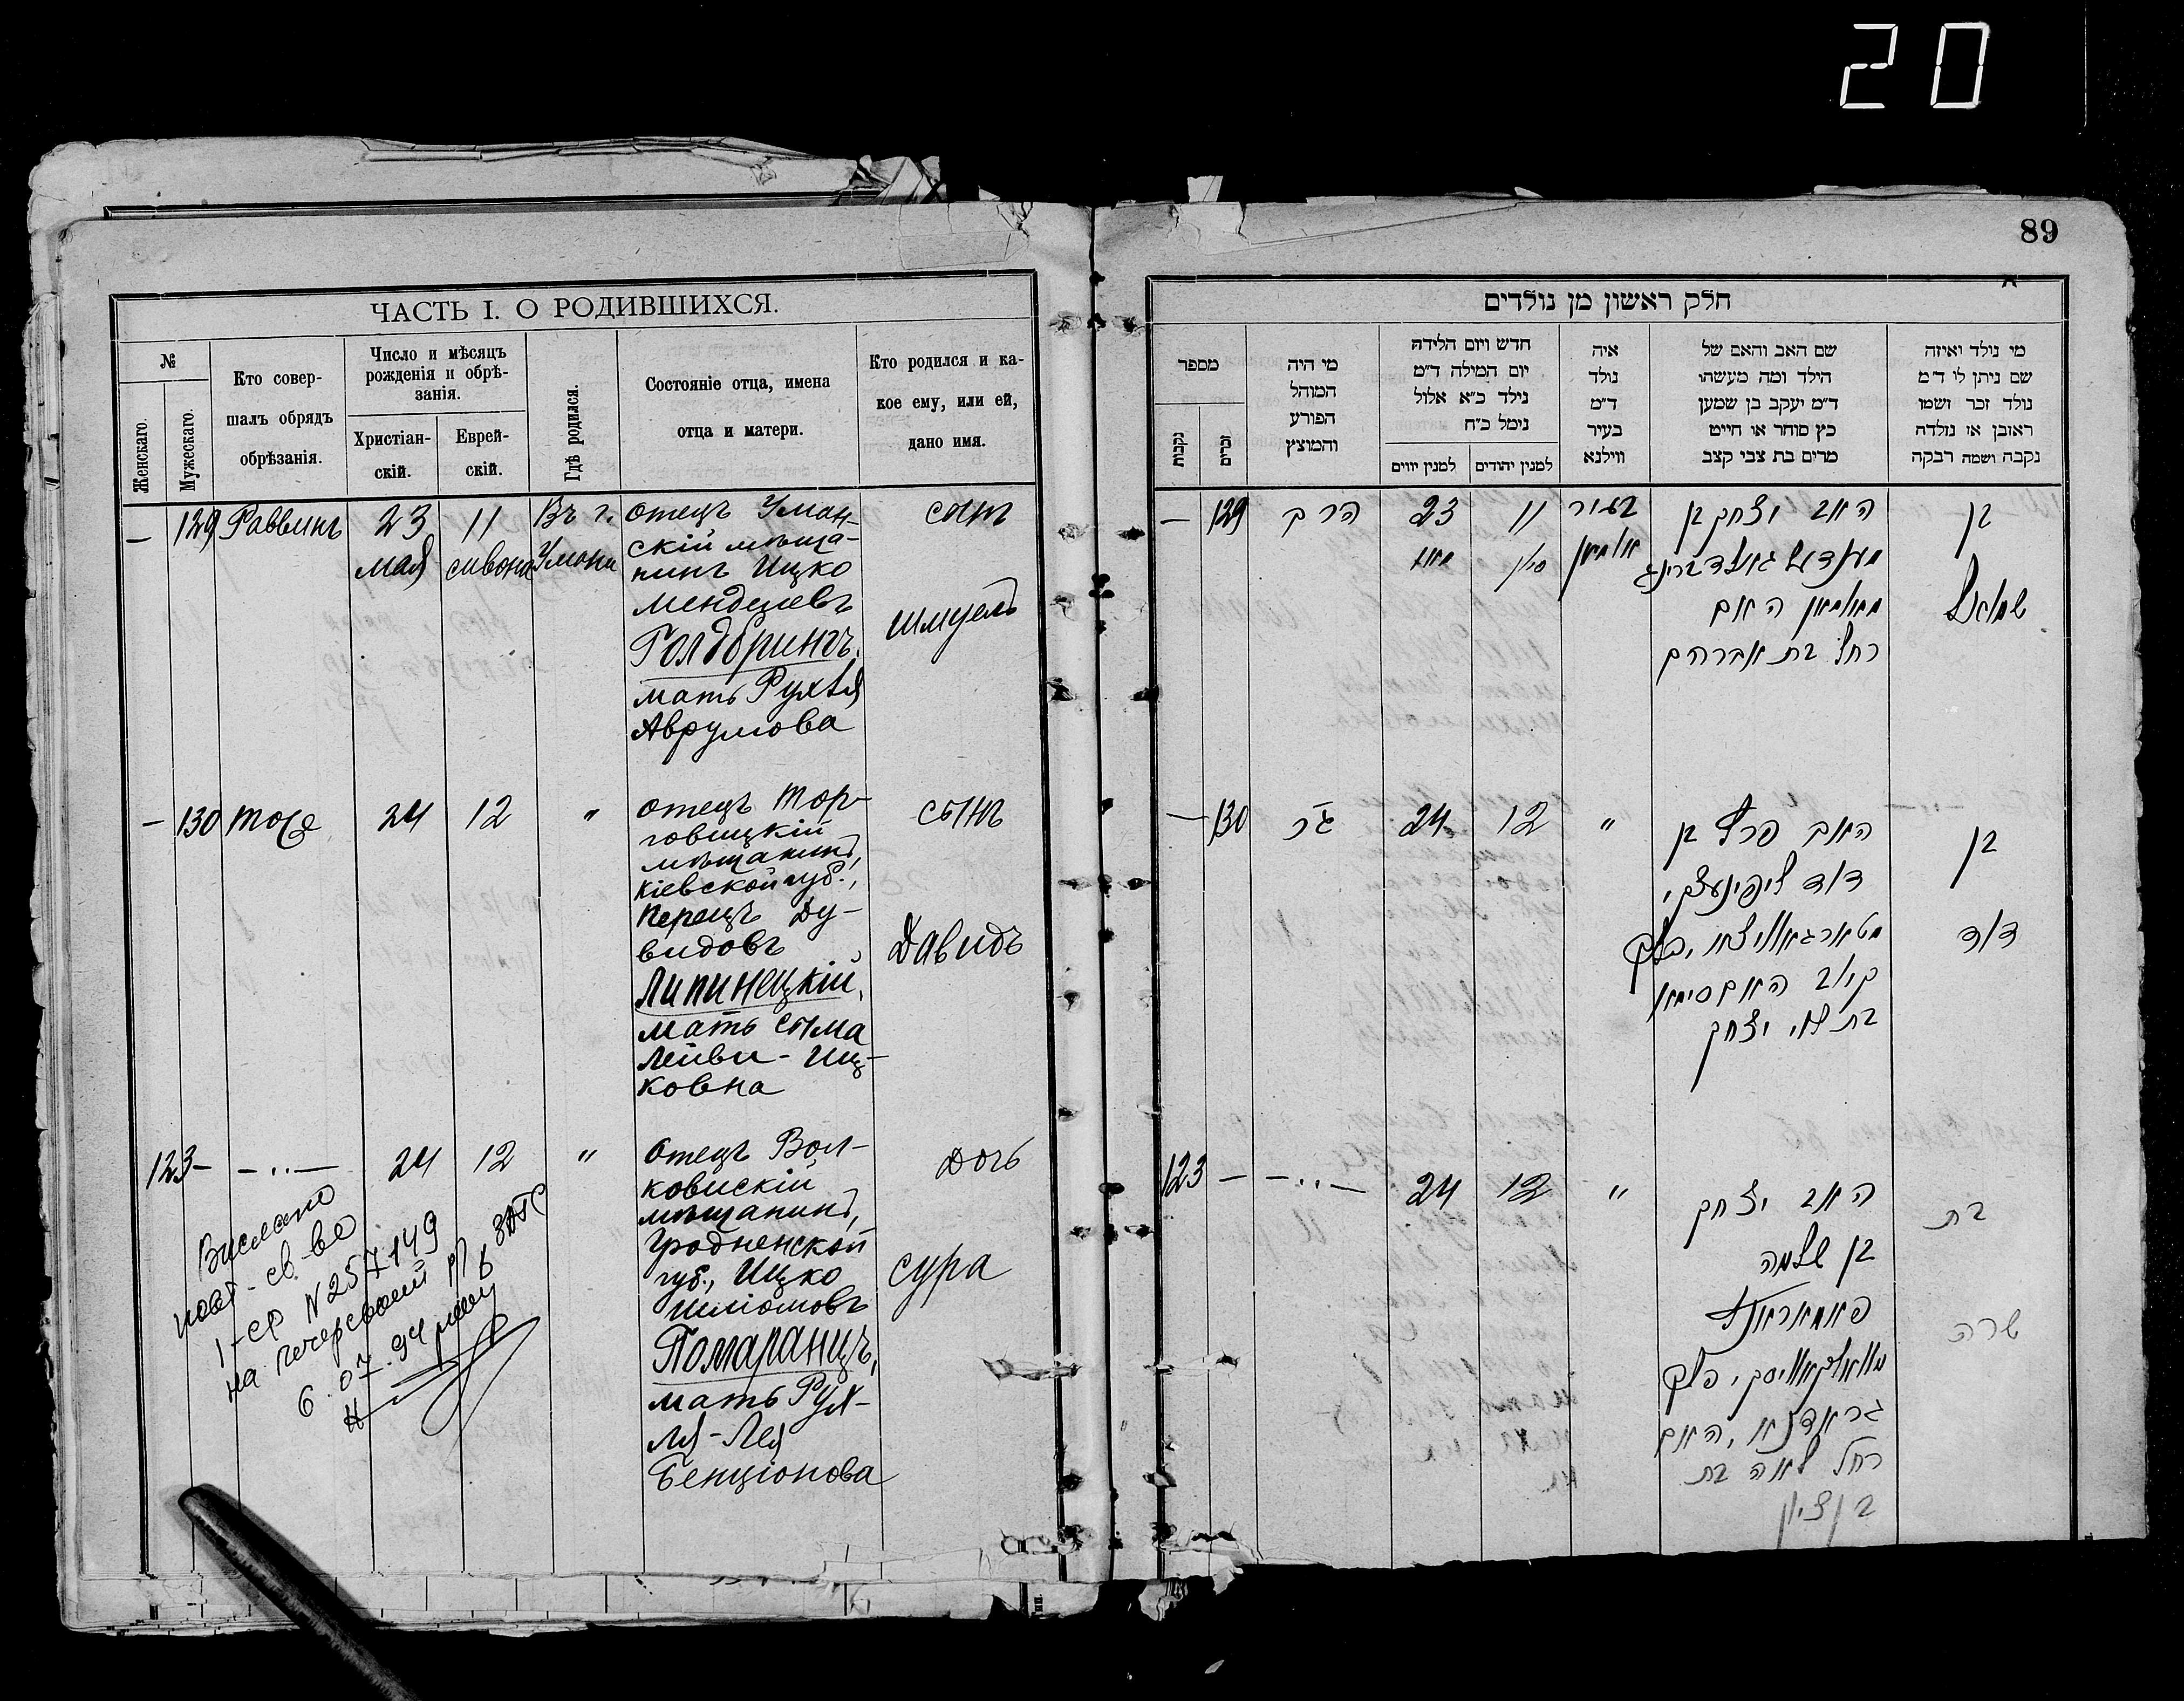 20
89
ЧАСТЬ I. О РОДИВШИХСЯ.
№
Женскаго.
Мужескаго.
Кто совер-
шалъ обрядъ
обрѣзанія.
Число и мѣсяцъ
рожденія и обрѣ-
занія.
Христіан-
скій.
Еврей-
скій.
Гдѣ родился.
Состояніе отца, имена
отца и матери.
Кто родился и ка-
кое ему, или ей,
дано имя.
— 129 Раввинъ 23 мая 11 сивона Въ г. Умани
отецъ Уман-
скій мѣща-
нинъ Ицко
Менделевъ
Голдбрингъ.
мать Рухля
Аврумова
сынъ
Шмуель
— 130 тоже 24 12 "
отецъ Тор-
говицкій
мѣщанинъ,
Кіевской губ.,
Перецъ Ду-
видовъ
Липинецкій,
мать Сыма
Лейви-Иц-
ковна
сынъ
Давидъ
123 — — " — 24 12 "
отецъ Вол-
ковискій
мѣщанинъ,
Гродненской
губ., Ицко
Шліомовъ
Помаранцъ,
мать Рух-
ля-Лея
Бенціонова
дочь
Сура
Вислано
повт. св-во
1-СР N 257149
на Печерский РП в ЗАГС
6.07.94 року
חלק ראשון מן נולדים
מספר
נקבות
זכרים
מי היה
המוהל
הפורע
והמוצץ
חדש ויום הלידה
יום המילה ד״מ
נילד כ״א אלול
נימל כ״ח
למנין יווים
למנין יהודים
איה
נולד
ד״מ
בעיר
ווילנא
שם האב והאם של
הילד ומה מעשהו
ד״מ יעקב בן שמען
כץ סוחר או חייט
מרים בת צבי קצב
מי נולד ואיזה
שם ניתן לו ד״מ
נולד זכר ושמו
ראובן או נולדה
נקבה ושמה רבקה
— 129 הרב 23 מאי 11 סיון בעיר אומאן
האב יצחק בן
מענדעל גאלדברינג
מאומאן האם
רחל בת אברהם
בן
שמואל
— 130 24 12 "
האב פרץ בן
דוד ליפינעצקי,
מטארגאוויצא, פלך
קיוב האם סימא
בת לוי יצחק
בן
דוד
123 — — " — 24 12 "
האב יצחק
בן שלמה
פאמאראנץ
מוואלקאוויסק, פלך
גראדנא, האם
רחל לאה בת
בן ציון
בת
שרה